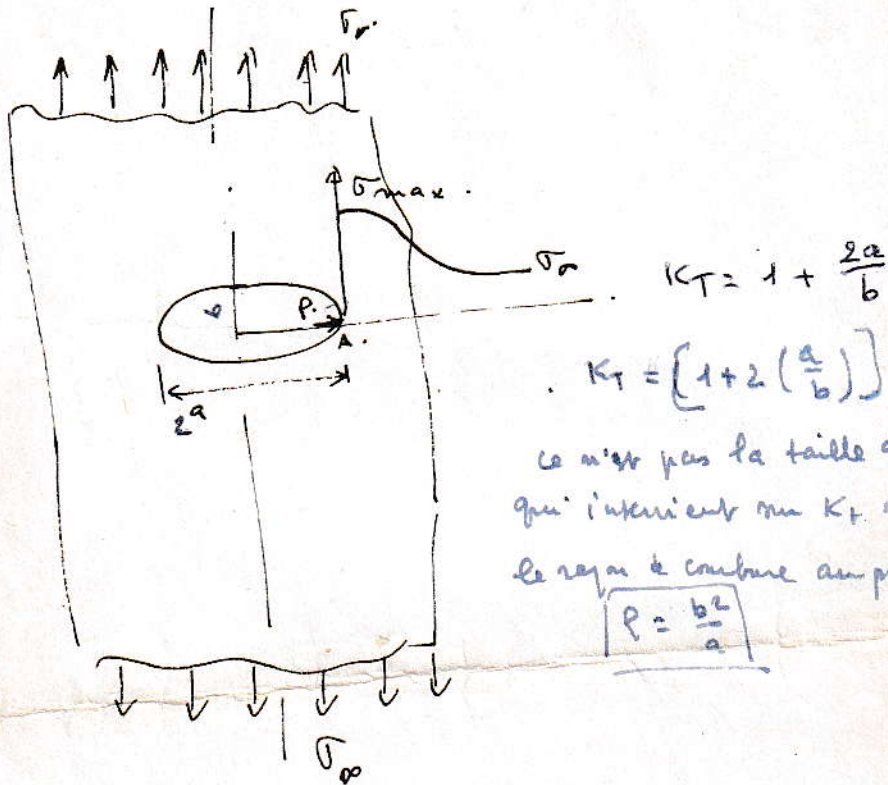 σ∞
σmax.
σ∞
K_T = 1 + 2a/b
b
ρ.
A.
2a
. K_T = [1 + 2 (a/b)]
ce n'est pas la taille
qui intervient sur K_t
le rayon de courbure au
ρ = b²/a
σ∞